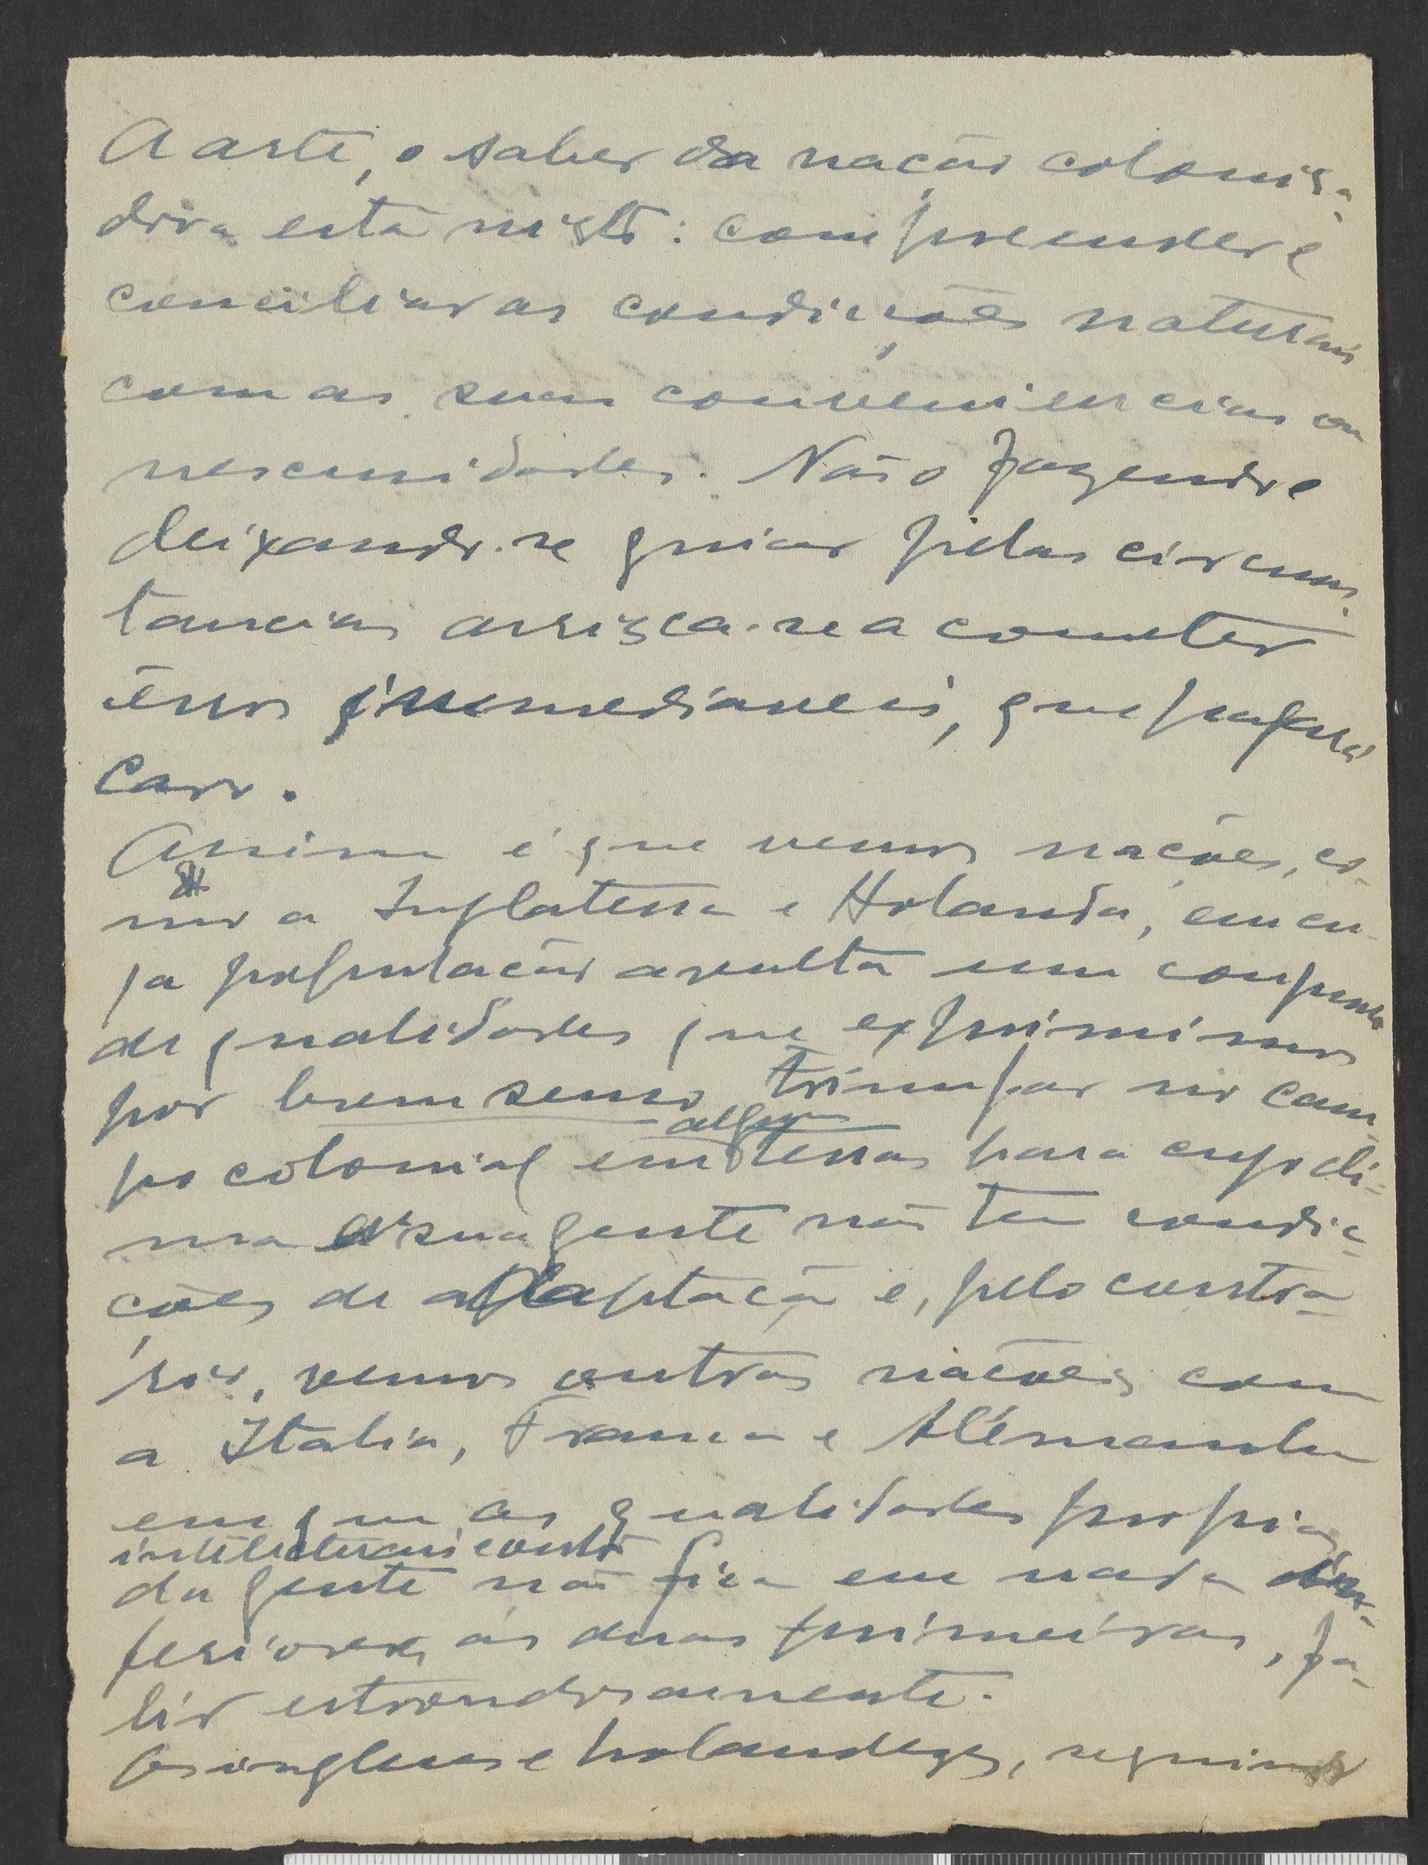 A arte, o saber da nação colonisa-
dora está nisto: compreender e
conciliar as condições naturais
com as suas conveniencias ou
nescessidades. Não o fazendo e
deixando-se guiar pelas circuns-
tancias arrisca-se a cometer
érros irremediaveis, que pagará
caro.
Assim é que vemos nações, co-
mo a Inglaterra e Holanda, em cu-
ja população avulta um conjunto
de qualidades que exprimimos
por bom senso, triunfar no cam-
po colonial em algumas terras para cujo cli-
ma a sua gente não tem condic-
ções de adaptação e, pelo contra-
rio, vemos outras nações com
a Italia, França e Alemanha
em que as qualidades proprias
intelectuais e
da gente não fica em nada in-
feriores ás duas primeiras, fa-
lir estrondosamente.
Os ingleses e holandezes, seguindo